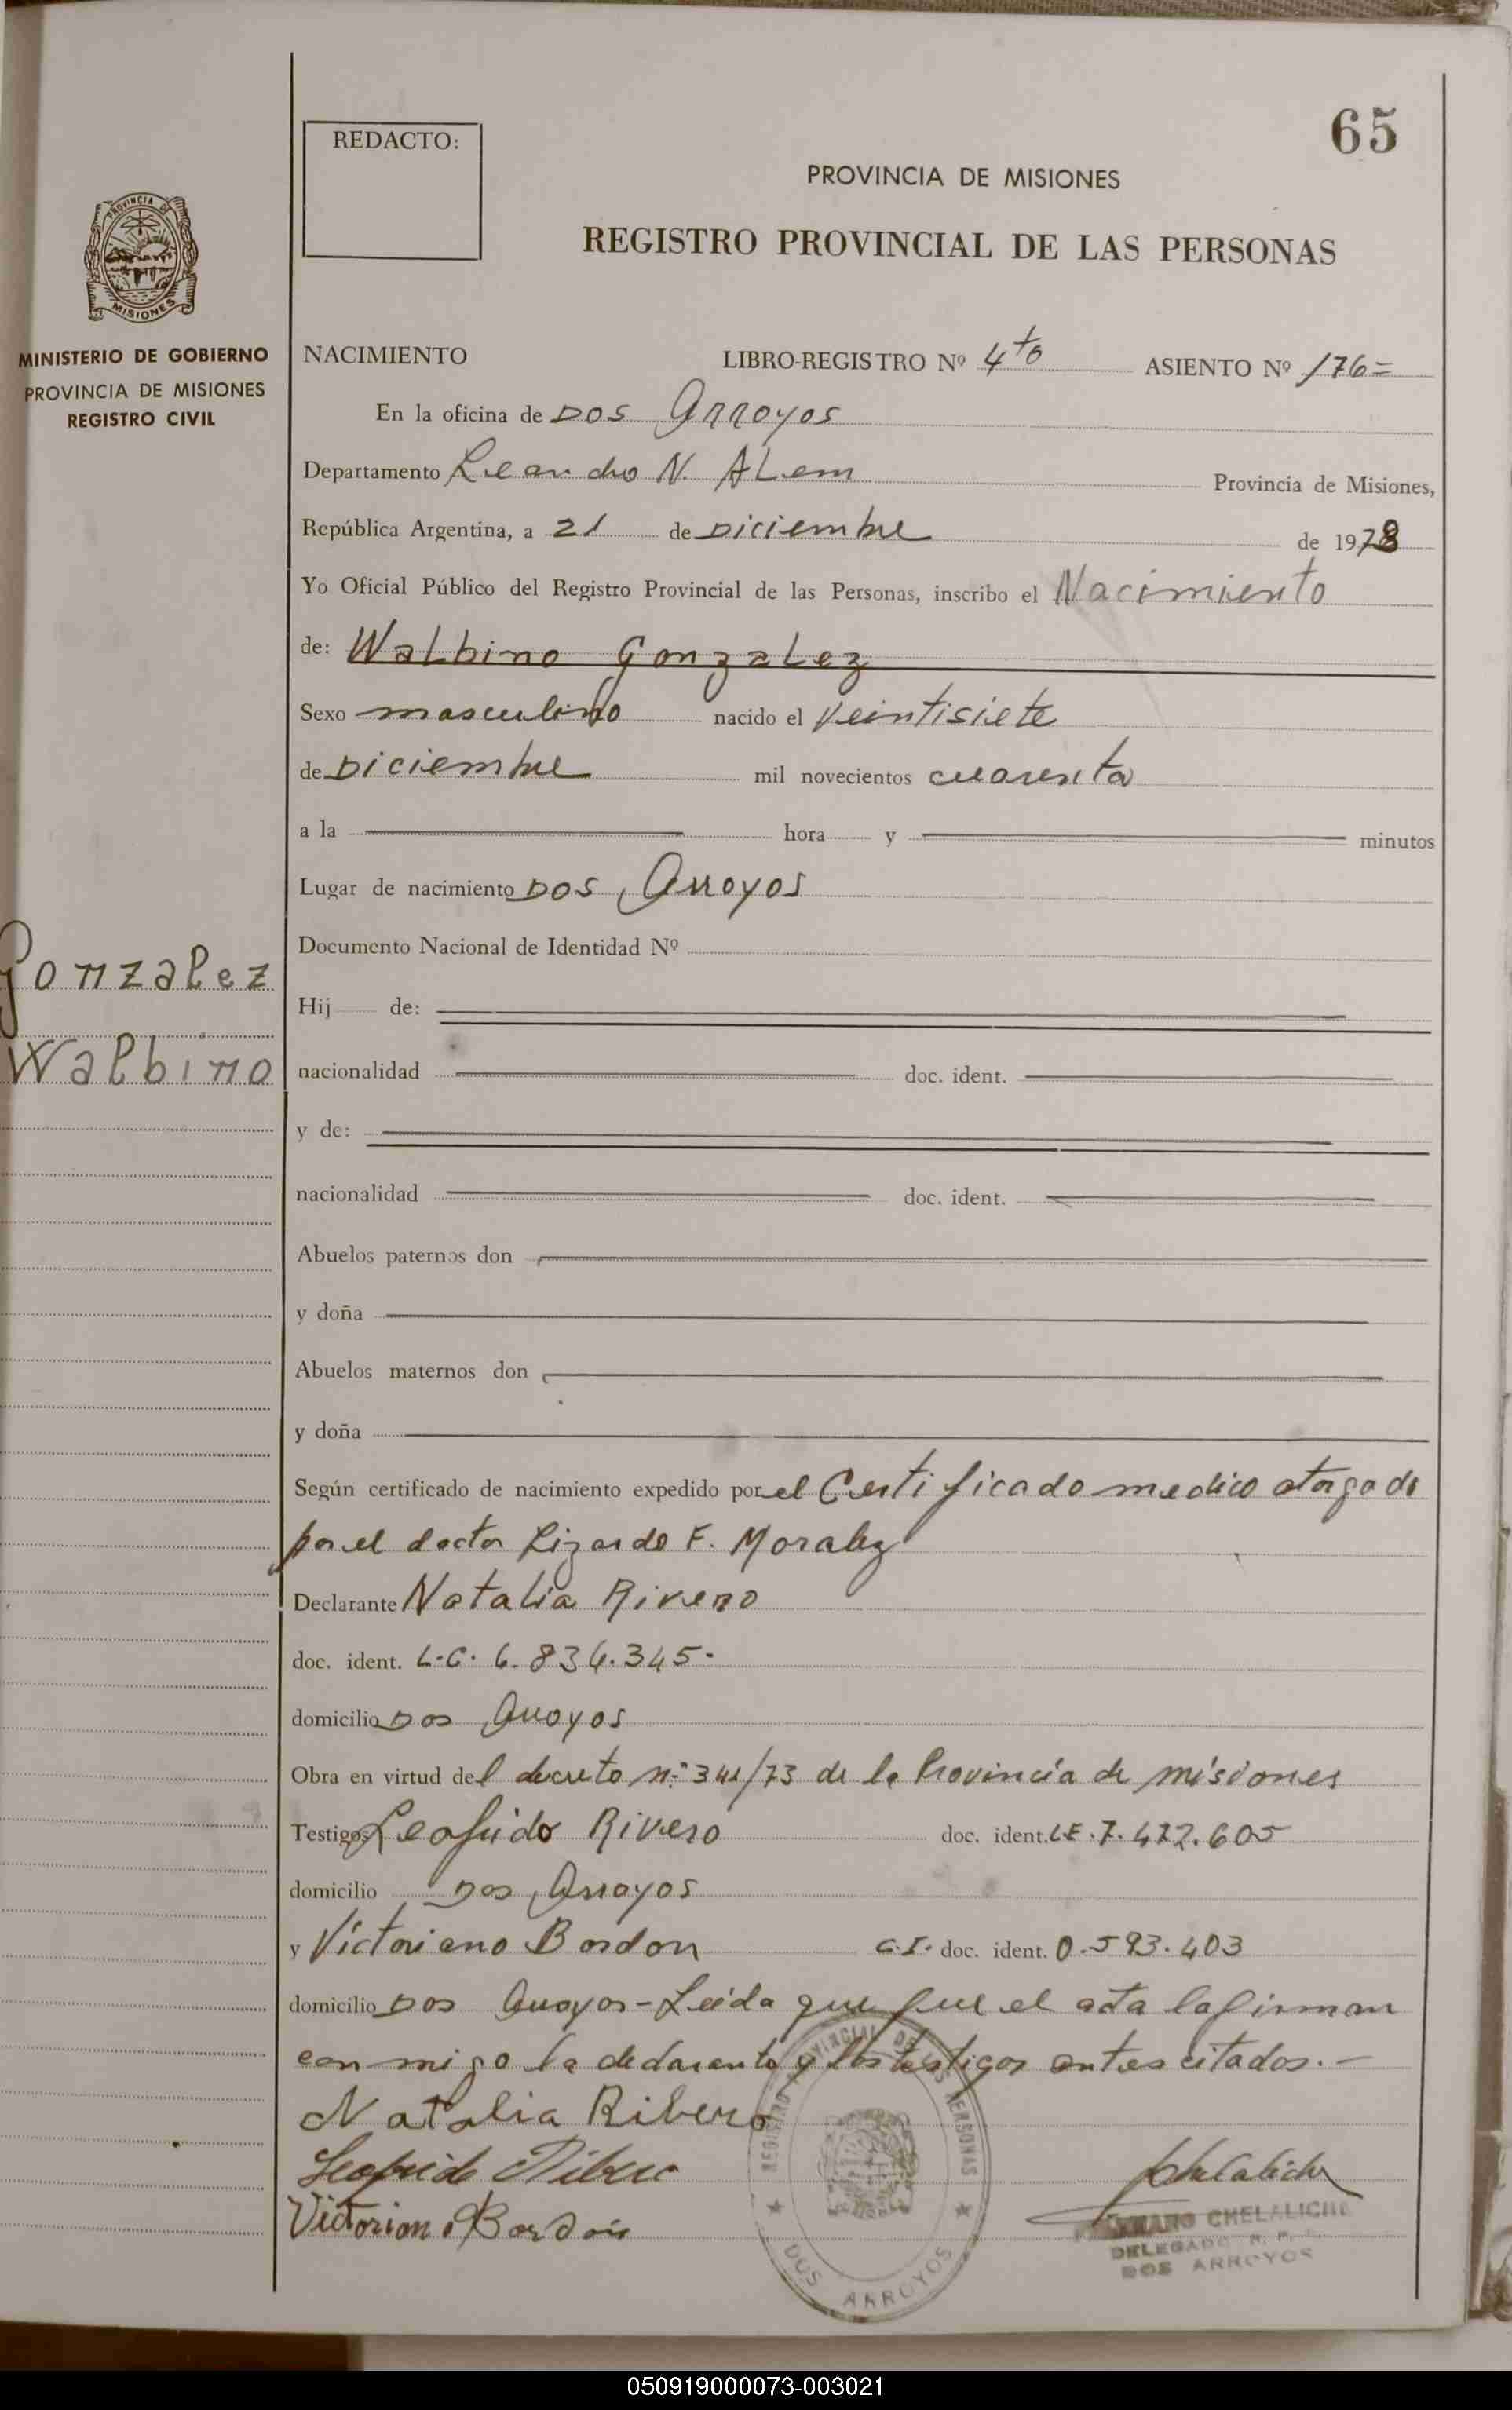 65
REDACTO:
PROVINCIA DE MISIONES
REGISTRO PROVINCIAL DE LAS PERSONAS
PROVINCIA DE
MISIONES
MINISTERIO DE GOBIERNO
PROVINCIA DE MISIONES
REGISTRO CIVIL
NACIMIENTO LIBRO-REGISTRO Nº 4to ASIENTO Nº 176=
En la oficina de Dos Arroyos
Departamento Leandro N. ALem Provincia de Misiones,
República Argentina, a 21 de Diciembre de 1978
Yo Oficial Público del Registro Provincial de las Personas, inscribo el Nacimiento
de: WaLbino GonzaLez
Sexo masculino nacido el veintisiete
de Diciembre mil novecientos cuarenta
a la hora y minutos
Lugar de nacimiento Dos Arroyos
Documento Nacional de Identidad Nº
Gonzalez
Hij de:
Walbino
nacionalidad doc. ident.
y de:
nacionalidad doc. ident.
Abuelos paternos don
y doña
Abuelos maternos don
y doña
Según certificado de nacimiento expedido por el Certificado medico otorgado
por el doctor Lizardo F. Moralez
Declarante Natalia Rivero
doc. ident. L.C. 6.834.345-
domicilio Dos Arroyos
Obra en virtud del decreto n.º /73 de la Provincia de misiones
Testigos Leofrido Rivero doc. ident. L.E. 7.472.605
domicilio Dos Arroyos
y Victoriano Bordon C.I. doc. ident. 0.593.403
domicilio Dos Arroyos - Leida que fue el acta la firman
conmigo la declarante y los testigos antes citados.-
Natalia Ribero
Leofrido Ribero
Victoriano Bordón
REGISTRO PROVINCIAL DE LAS PERSONAS
DOS ARROYOS
CHELALICHE
DELEGADO R. P.
DOS ARROYOS
050919000073-003021